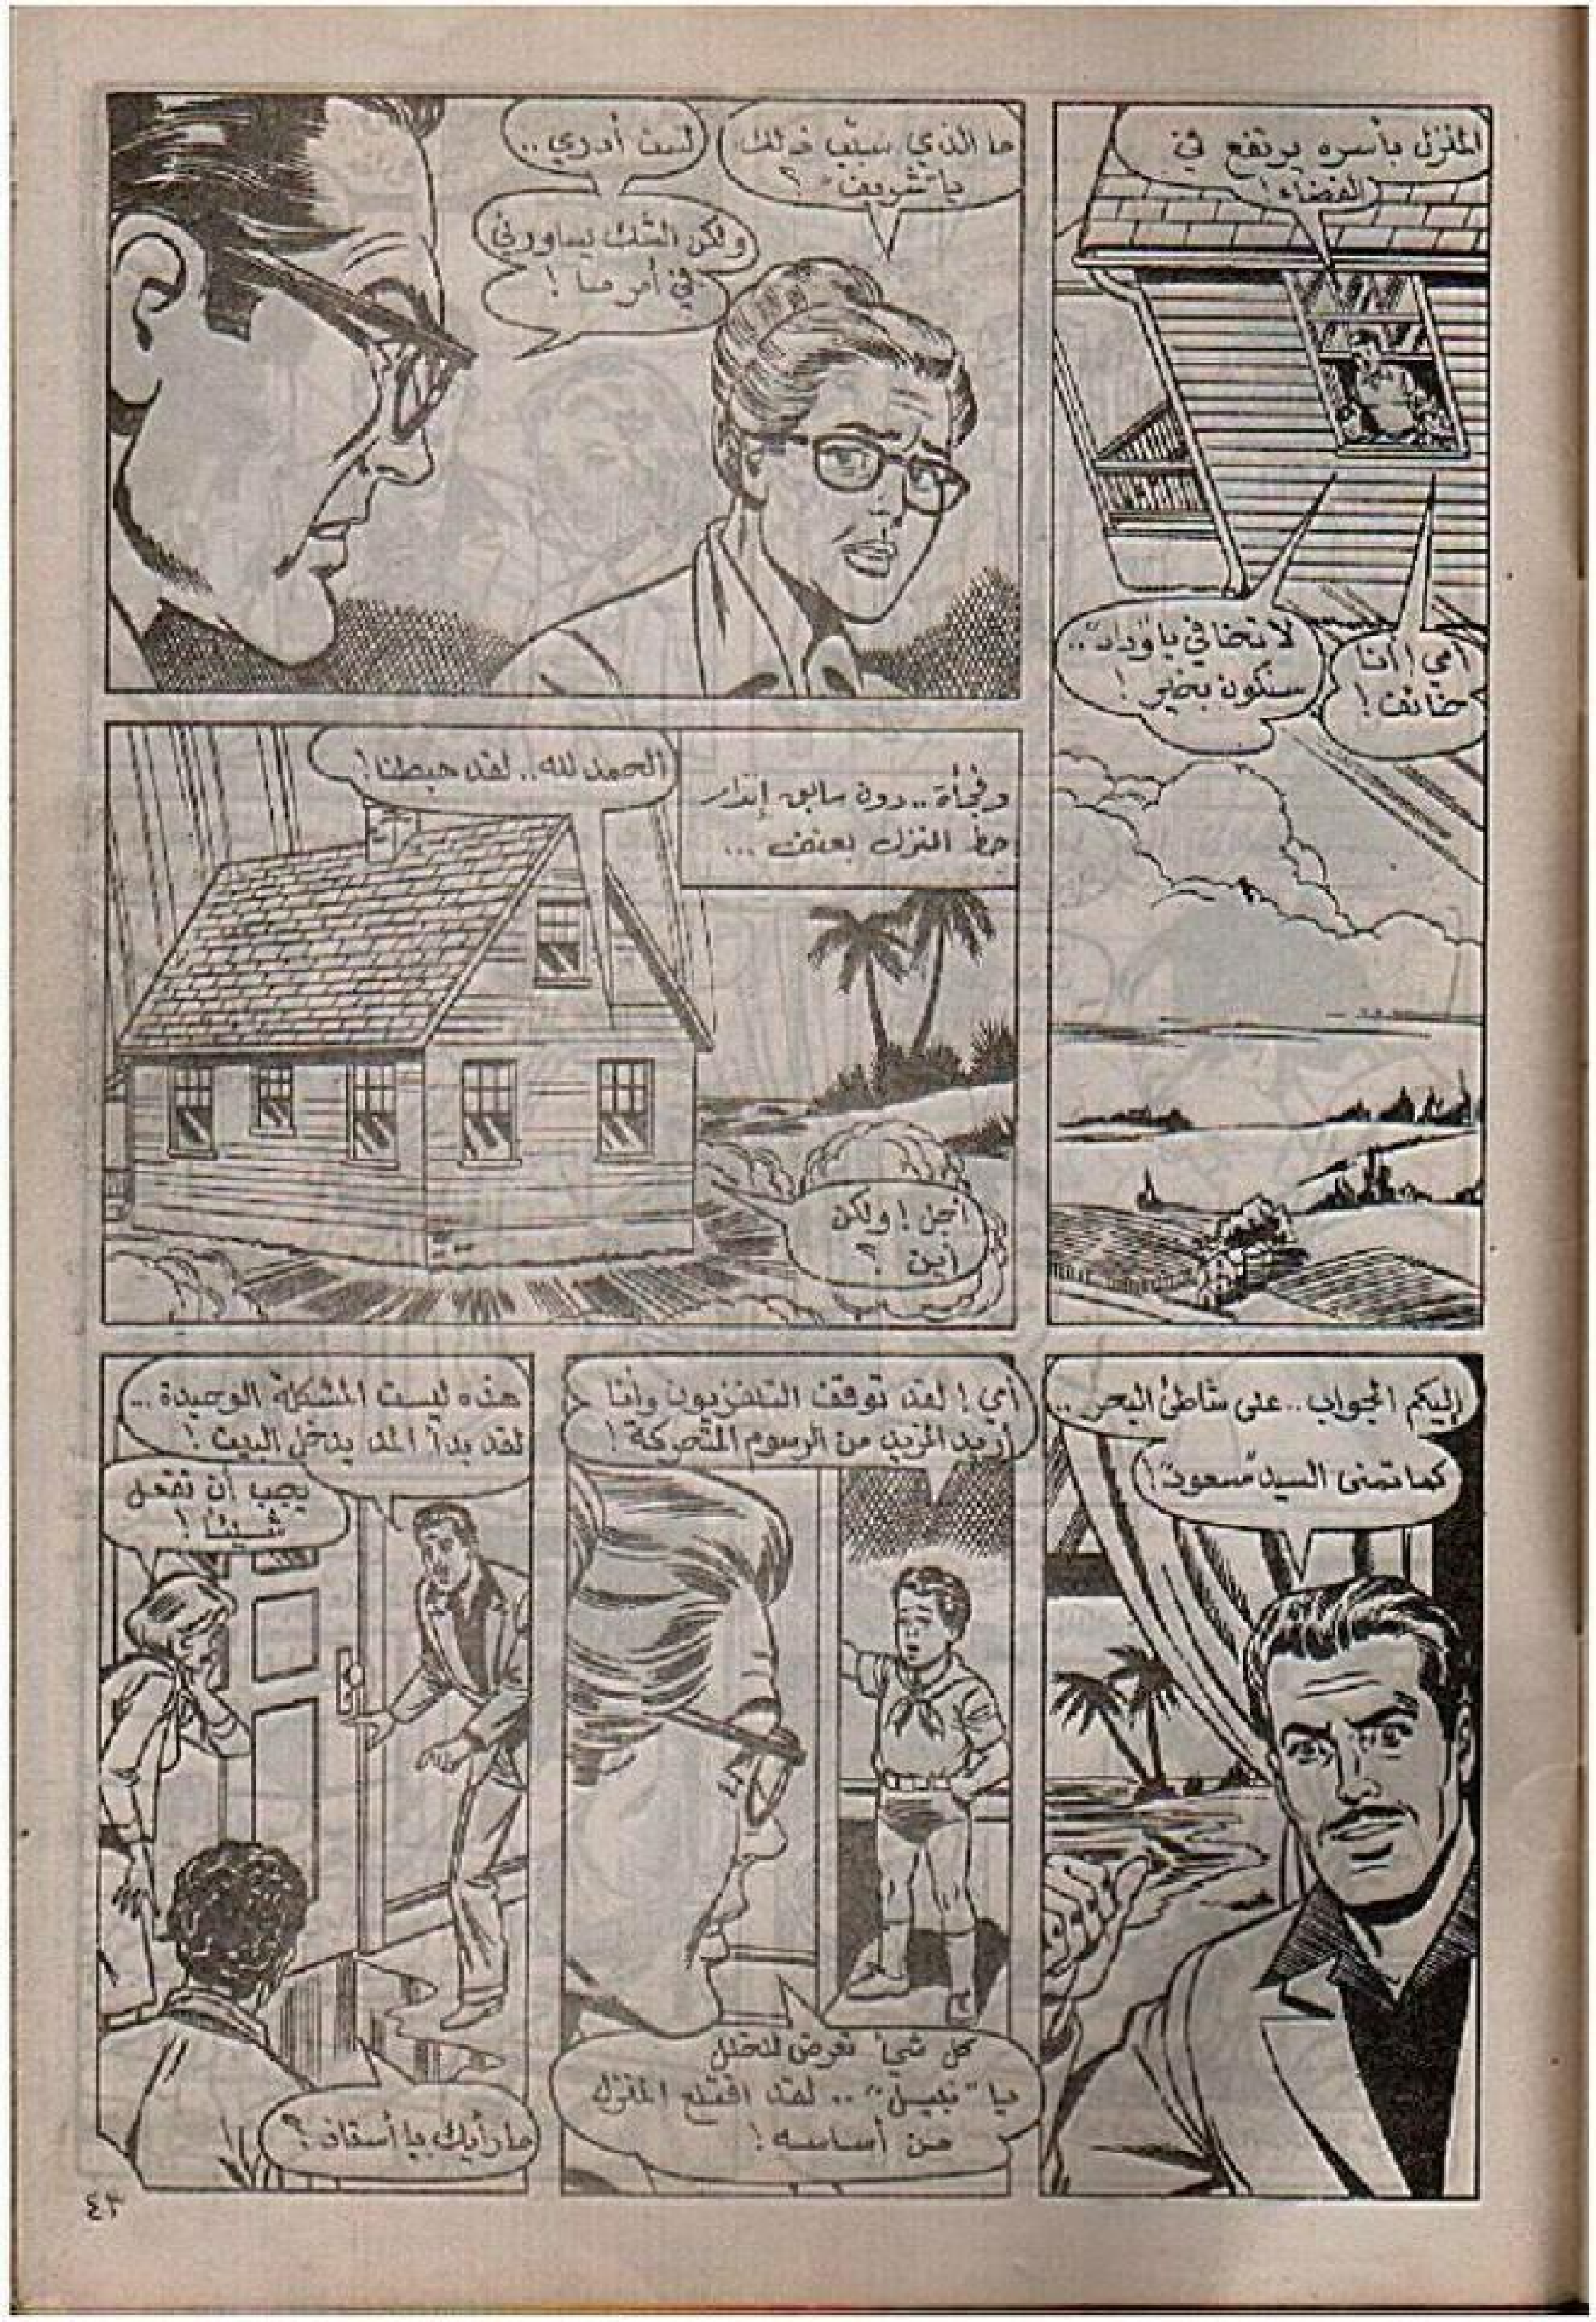 المنزل بأسره يرتفع في
الفضاء!
أمي! أنا
خائف!
لا تخافي يا "وداد"..
سنكون بخير!
ما الذي سبّب ذلك
يا "شريف" ؟
لست أدري ..
ولكن الشك يساورني
في أمر ما !
وفجأة.. دون سابق إنذار
حط المنزل بعنف ...
الحمد لله.. لقد هبطنا!
أجل! ولكن
أين ؟
إليكم الجواب.. على شاطئ البحر ..
كما تمنى السيد "مسعود"!
أمي! لقد توقف التلفزيون وأنا
أريد المزيد من الرسوم المتحركة!
كل شيء تعرض للخلل
يا "نبيل" .. لقد اقتلع المنزل
من أساسه!
هذه ليست المشكلة الوحيدة ..
لقد بدأ المد يدخل البيت!
يجب أن نفعل
شيئا!
ما رأيك يا أستاذ؟
٤٣